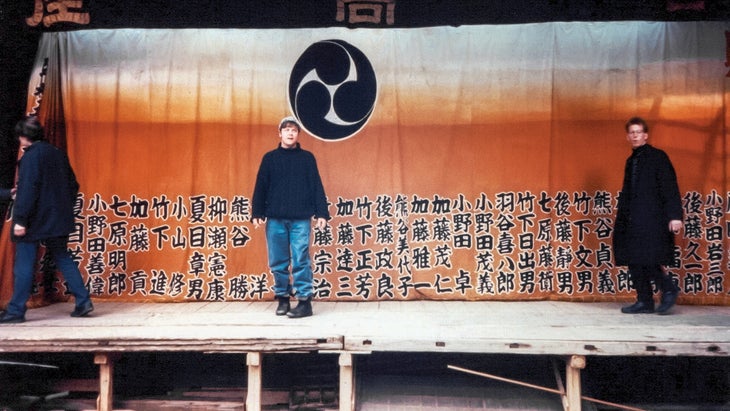 小野田岩三郎
後藤久一郎
熊谷貞義
竹下文男
後藤静男
七原藤衛
竹下日出男
羽谷喜八郎
小野田茂義
小野田卓
加藤茂仁
加藤雅一
熊谷美代子
後藤政良
竹下正芳
加藤達三
藤宗治
洋
熊谷勝
柳瀬憲康
夏目章男
小山修
竹下進
加藤貢
七原明郎
小野田善偉
夏目